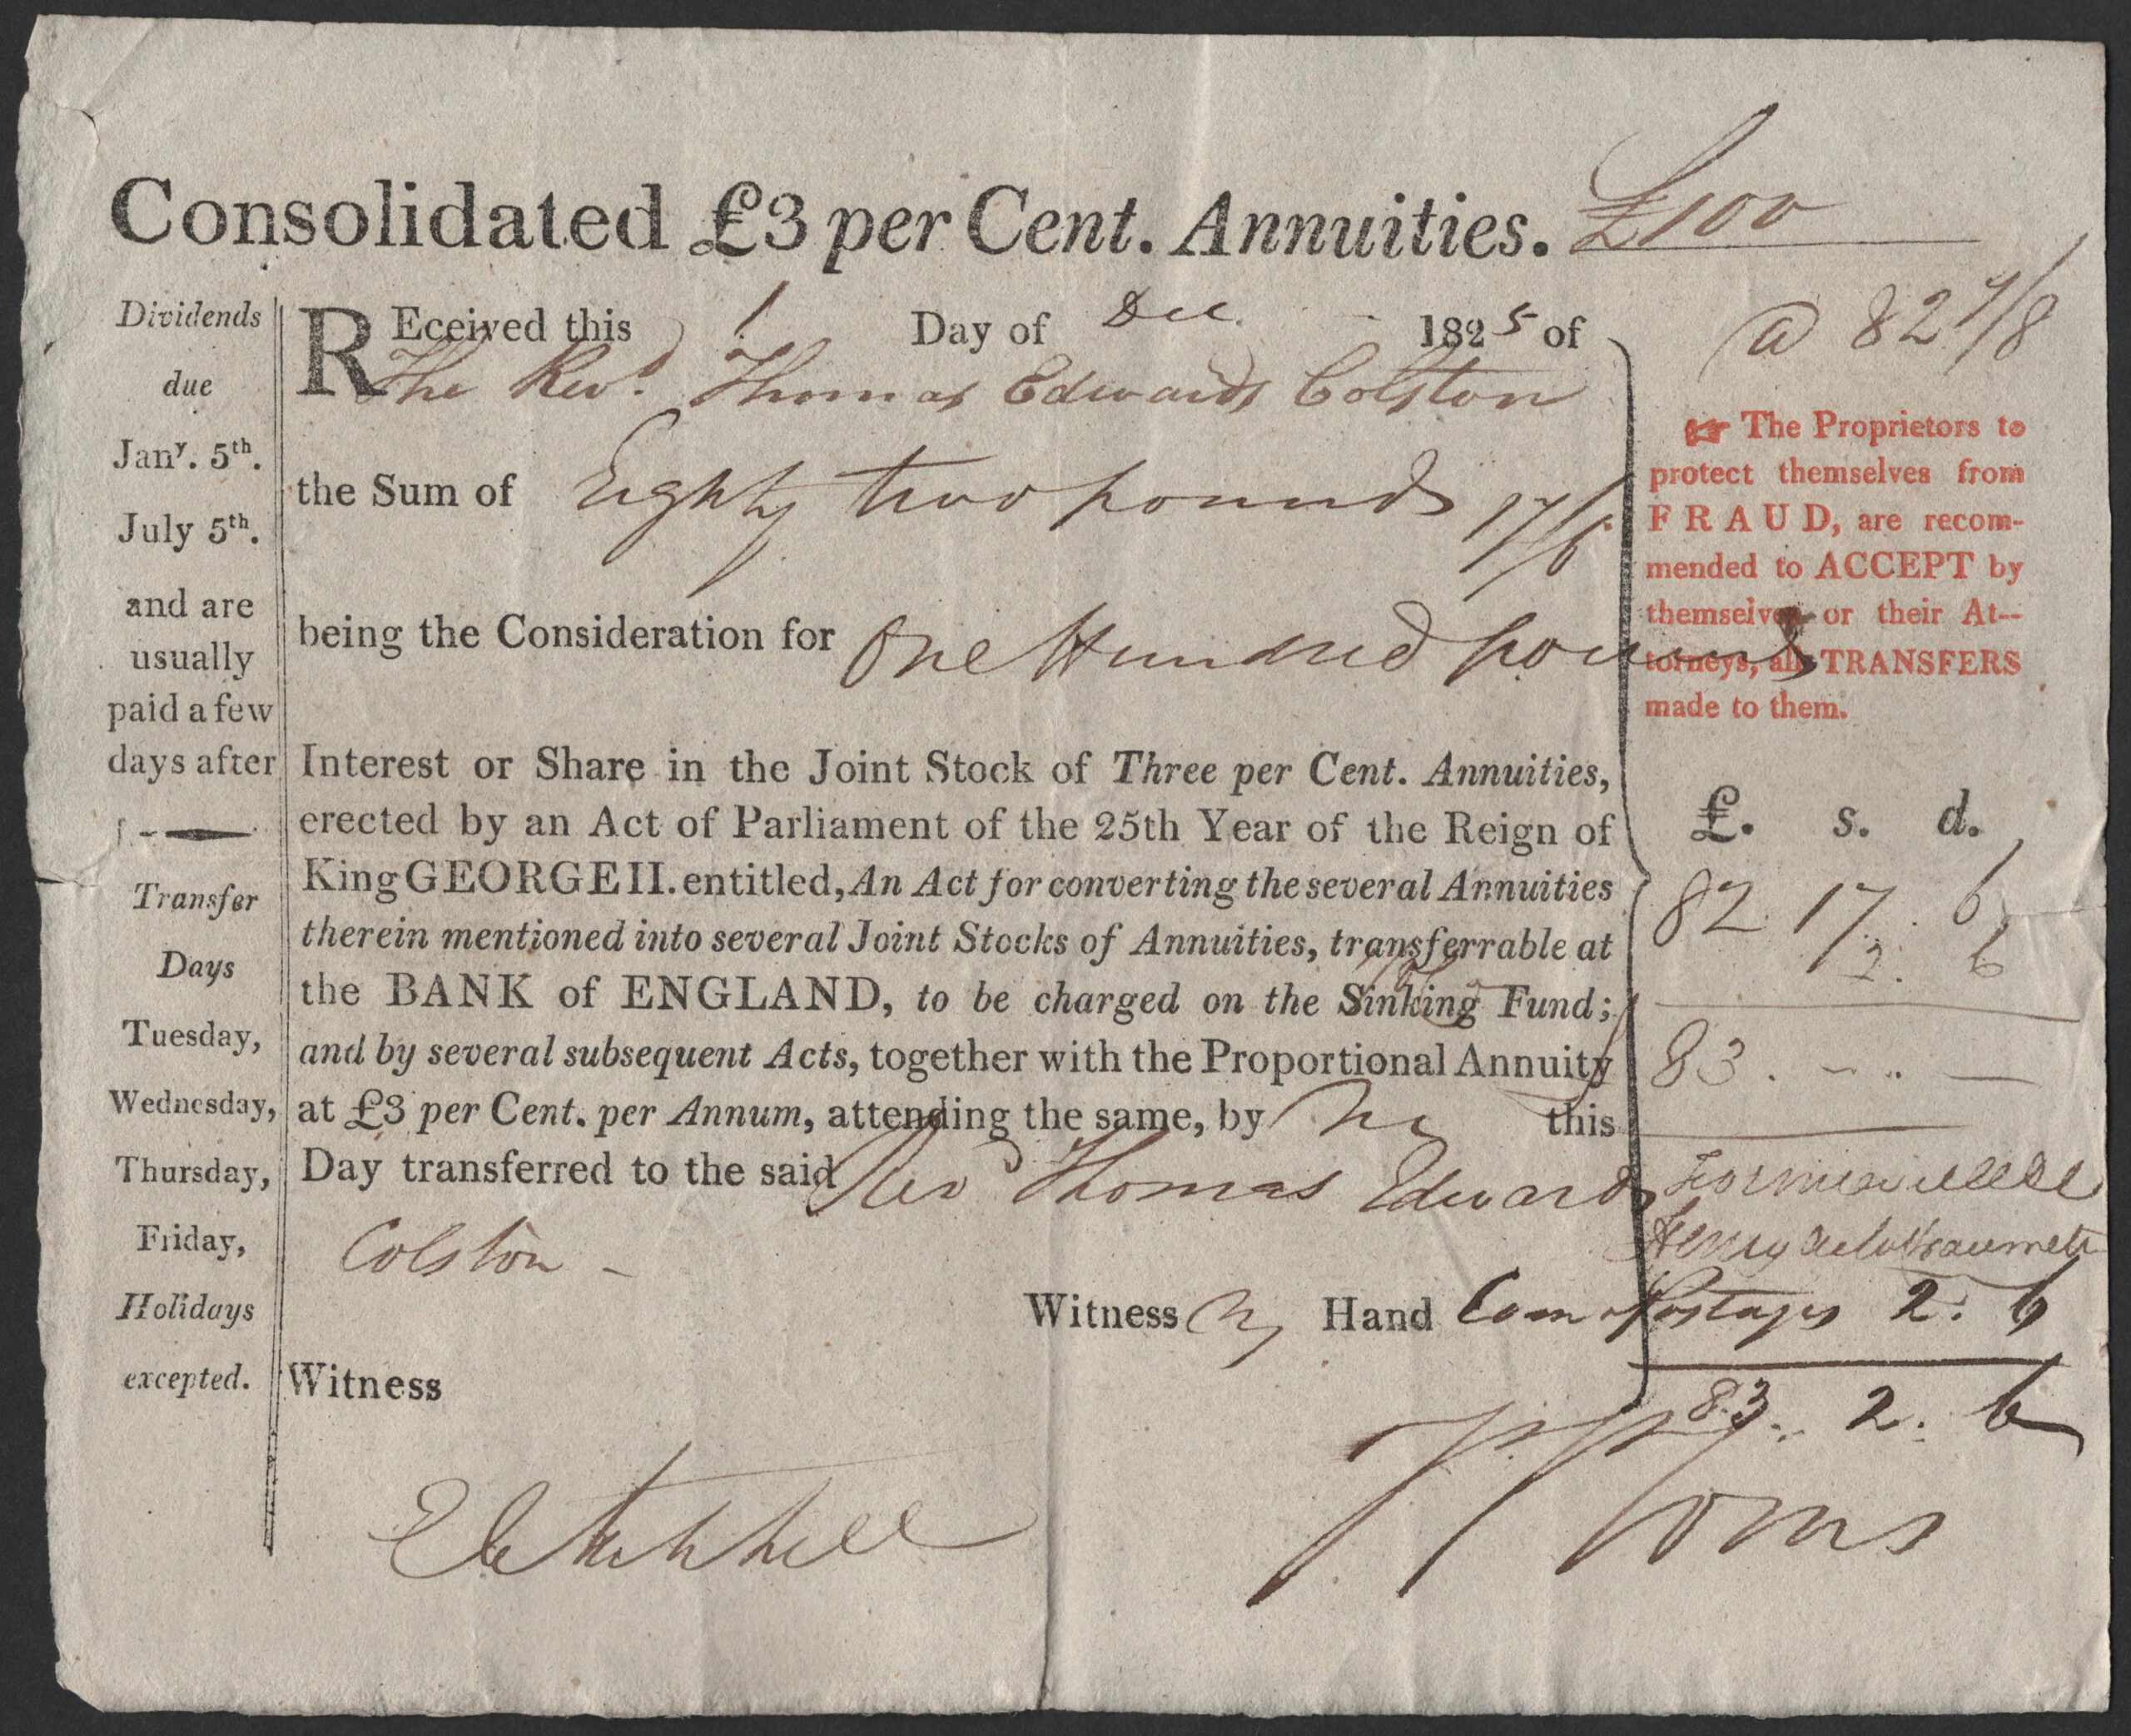 Consolidated £3 per Cent. Annuities. £100
Dividends
due
Janʸ. 5th.
July 5th.
and are
usually
paid a few
days after
Transfer
Days
Tuesday,
Wednesday,
Thursday,
Friday,
Holidays
excepted.
REceived this 1 Day of Dec 1825 of
The Revd. Thomas Edwards Colston
the Sum of Eighty two pounds 17/6
being the Consideration for One Hundred pounds
Interest or Share in the Joint Stock of Three per Cent. Annuities,
erected by an Act of Parliament of the 25th Year of the Reign of
King GEORGE II. entitled, An Act for converting the several Annuities
therein mentioned into several Joint Stocks of Annuities, transferrable at
the BANK of ENGLAND, to be charged on the Sinking Fund;
and by several subsequent Acts, together with the Proportional Annuity
at £3 per Cent. per Annum, attending the same, by my this
Day transferred to the said Revd Thomas Edwards
Colston -
Witness my Hand
Witness
@ 82 7/8
The Proprietors to
protect themselves from
FRAUD, are recom-
mended to ACCEPT by
themselves or their At--
torneys, all TRANSFERS
made to them.
£. s. d.
82 17. 6
2. 6
83. - .. -
Henry
Com Postages 2. 6
83.. 2. 6